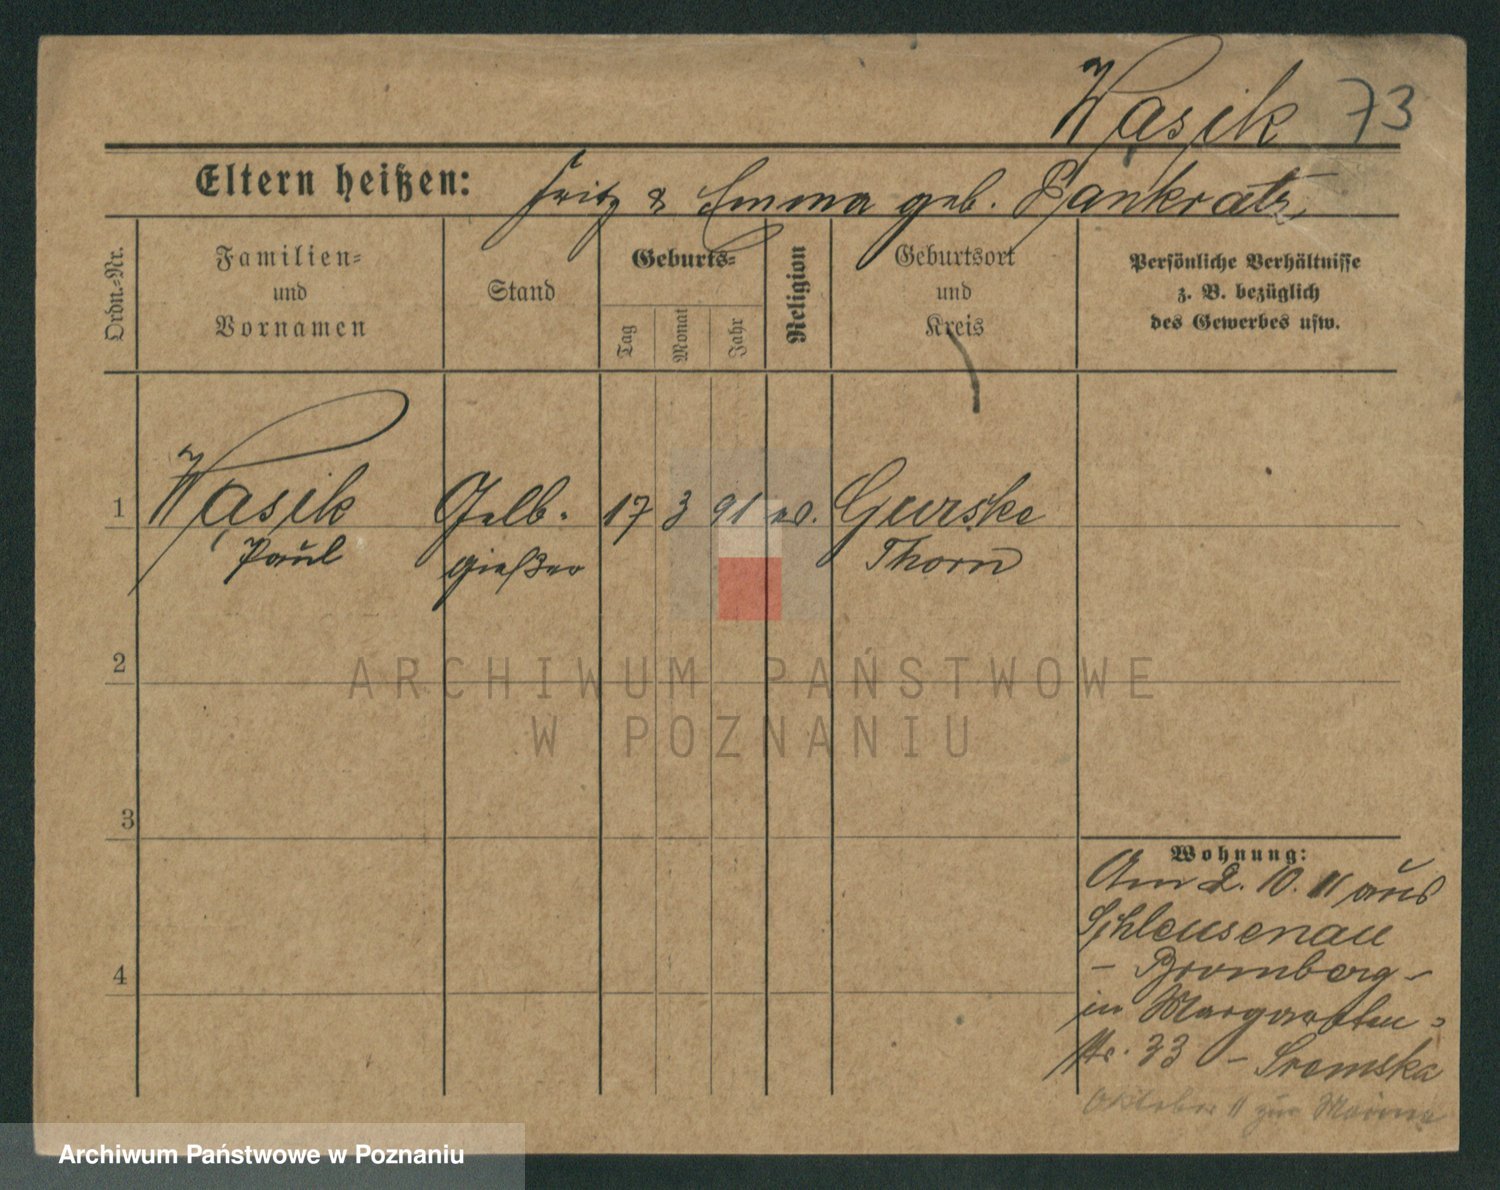 Wąsik 73
Eltern heißen: Fritz & Emma geb. Pankratz
Ordn.=Nr.
Familien=
und
Vornamen
Stand
Geburts=
Tag
Monat
Jahr
Religion
Geburtsort
und
Kreis
Persönliche Verhältnisse
z. B. bezüglich
des Gewerbes usw.
1 Wąsik Gelb- 17 3 91 ev. Gurske
Paul gießer Thorn
2
ARCHIWUM PAŃSTWOWE
W POZNANIU
3
Wohnung:
Am 2. 10. 11 aus
Schleusenau
4
– Bromberg –
in Margareten=
str. 33 – Sremska
Oktober 11 zur Marine
Archiwum Państwowe w Poznaniu